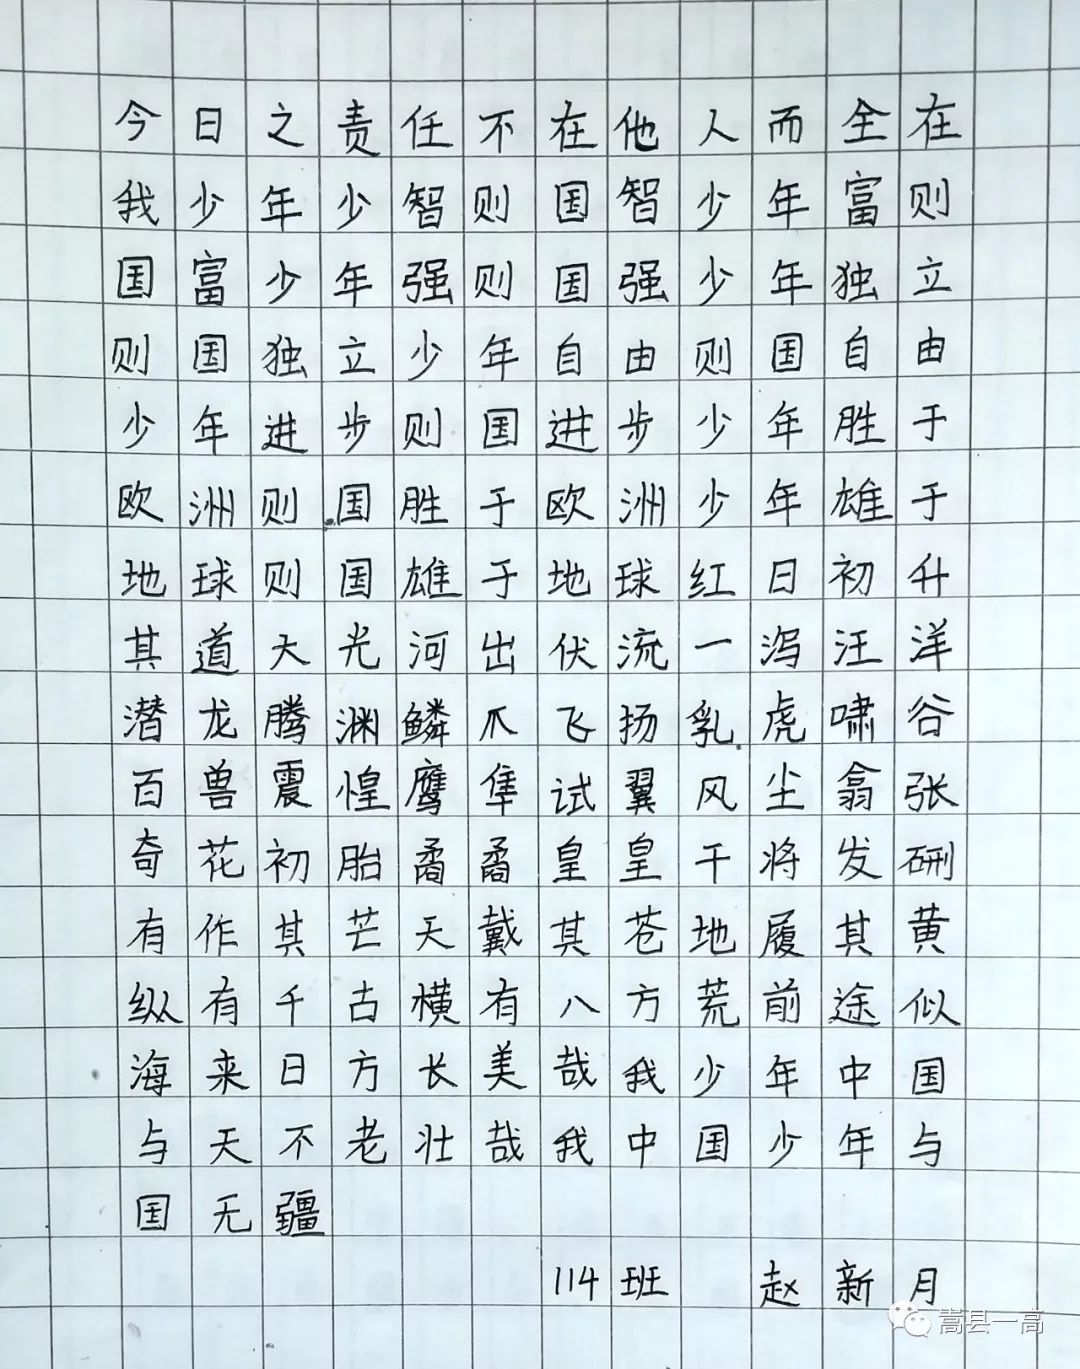 今日之责任不在他人而全在
我少年少智则国智少年富则
国富少年强则国强少年独立
则国独立少年自由则国自由
少年进步则国进步少年胜于
欧洲则国胜于欧洲少年雄于
地球则国雄于地球红日初升
其道大光河出伏流一泻汪洋
潜龙腾渊鳞爪飞扬乳虎啸谷
百兽震惶鹰隼试翼风尘翕张
奇花初胎矞矞皇皇干将发硎
有作其芒天戴其苍地履其黄
纵有千古横有八方荒前途似
海来日方长美哉我少年中国
与天不老壮哉我中国少年与
国无疆
114班 赵新月
嵩县一高